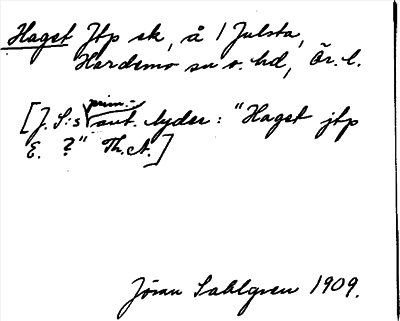 Haget Jtp sk, å 1 Julsta,
Hardemo sn o. hd, Ör. l.
[J. S:s prim.-
ant. lyder: "Haget jtp
E. ?" Th. A.]
Jöran Sahlgren 1909.